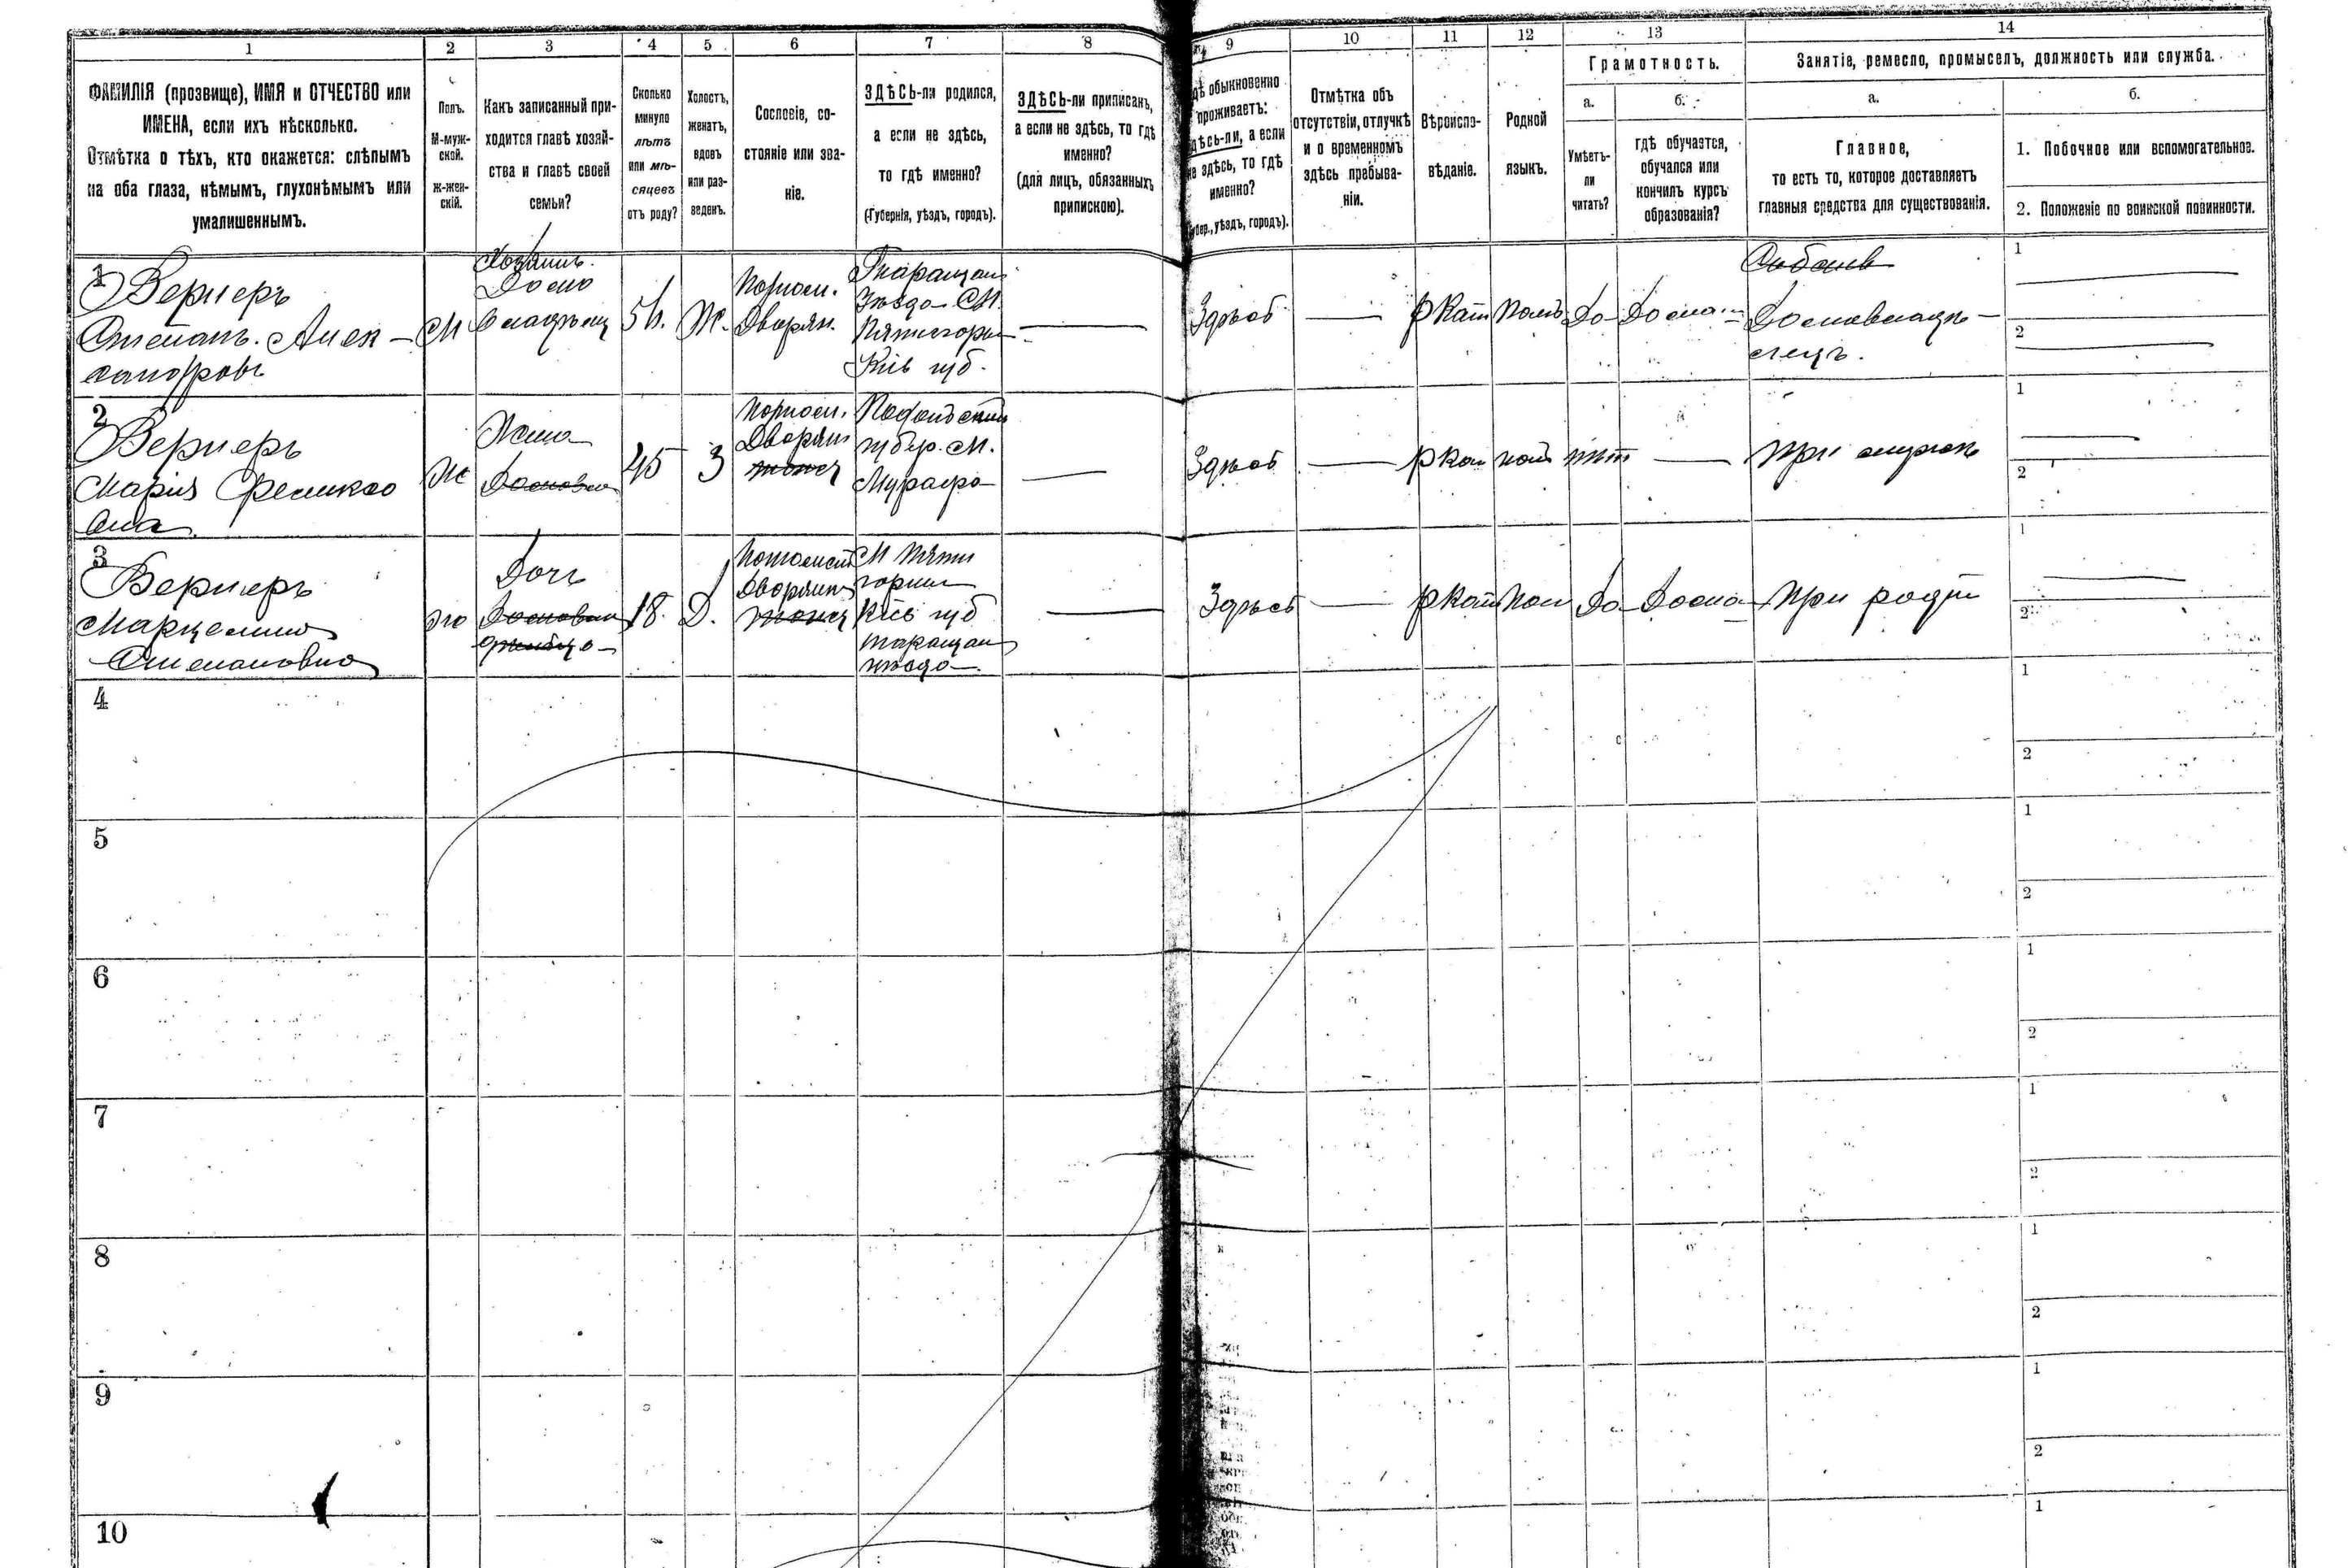 1 2 3 4 5 6 7 8 9 10 11 12 13 14
ФАМИЛІЯ (прозвище), ИМЯ и ОТЧЕСТВО или
ИМЕНА, если ихъ нѣсколько.
Отмѣтка о тѣхъ, кто окажется: слѣпымъ
на оба глаза, нѣмымъ, глухонѣмымъ или
умалишеннымъ.
Полъ.
М-муж-
ской.
Ж-жен-
скій.
Какъ записанный при-
ходится главѣ хозяй-
ства и главѣ своей
семьи?
Сколько
минуло
лѣтъ
или мѣ-
сяцевъ
отъ роду?
Холостъ,
женатъ,
вдовъ
или раз-
веденъ.
Сословіе, со-
стояніе или зва-
ніе.
ЗДѢСЬ-ли родился,
а если не здѣсь,
то гдѣ именно?
(Губернія, уѣздъ, городъ).
ЗДѢСЬ-ли приписанъ,
а если не здѣсь, то гдѣ
именно?
(для лицъ, обязанныхъ
припискою).
обыкновенно
проживаетъ:
а если
здѣсь, то гдѣ
именно?
уѣздъ, городъ).
Отмѣтка объ
отсутствіи, отлучкѣ
и о временномъ
здѣсь пребыва-
ніи.
Вѣроиспо-
вѣданіе.
Родной
языкъ.
Грамотность.
а.
Умѣетъ-
ли
читать?
б.
гдѣ обучается,
обучался или
кончилъ курсъ
образованія?
Занятіе, ремесло, промыселъ, должность или служба.
а.
Главное,
то есть то, которое доставляетъ
главныя средства для существованія.
б.
1. Побочное или вспомогательное.
2. Положеніе по воинской повинности.
1
Вернеръ
Степанъ. Алек-
сандровъ
М
Хозяинъ.
Домо
владѣлец
56.
Ж.
Потом.
Дворян.
Таращан
уѣзда М.
Пятигоры
Кіев губ.
Здѣсь
рКат
Поль
Да
Дома
Домовладѣ-
лецъ.
1
2
2
Вернеръ
Марія Феликсо
вна
Ж
Жена
45
З
Потом.
Дворян
Подольской
губер. М.
Мурафа
Здѣсь
рКат
пол
нѣт
При мужѣ
1
2
3
Вернеръ
Марцелина
Степановна
Ж
Дочь
18.
Д.
Потомств
Дворянк
М Пяти
горы
Кіев губ
таращан
уѣзда
Здѣсь
рКат
Пол
Да
Дома
При родит
1
2
4
1
2
5
1
2
6
1
2
7
1
2
8
1
2
9
1
2
10
1